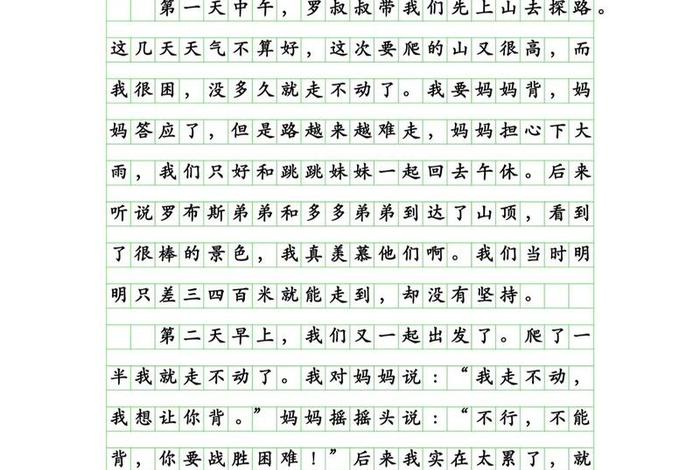 第一天中午，罗叔叔带我们先上山去探路。
这几天天气不算好，这次要爬的山又很高，而
我很困，没多久就走不动了。我要妈妈背，妈
妈答应了，但是路越来越难走，妈妈担心下大
雨，我们只好和跳跳妹妹一起回去午休。后来
听说罗布斯弟弟和多多弟弟到达了山顶，看到
了很棒的景色，我真羡慕他们啊。我们当时明
明只差三四百米就能走到，却没有坚持。
第二天早上，我们又一起出发了。爬了一
半我就走不动了。我对妈妈说：“我走不动，
我想让你背。”妈妈摇摇头说：“不行，不能
背，你要战胜困难！”后来我实在太累了，就